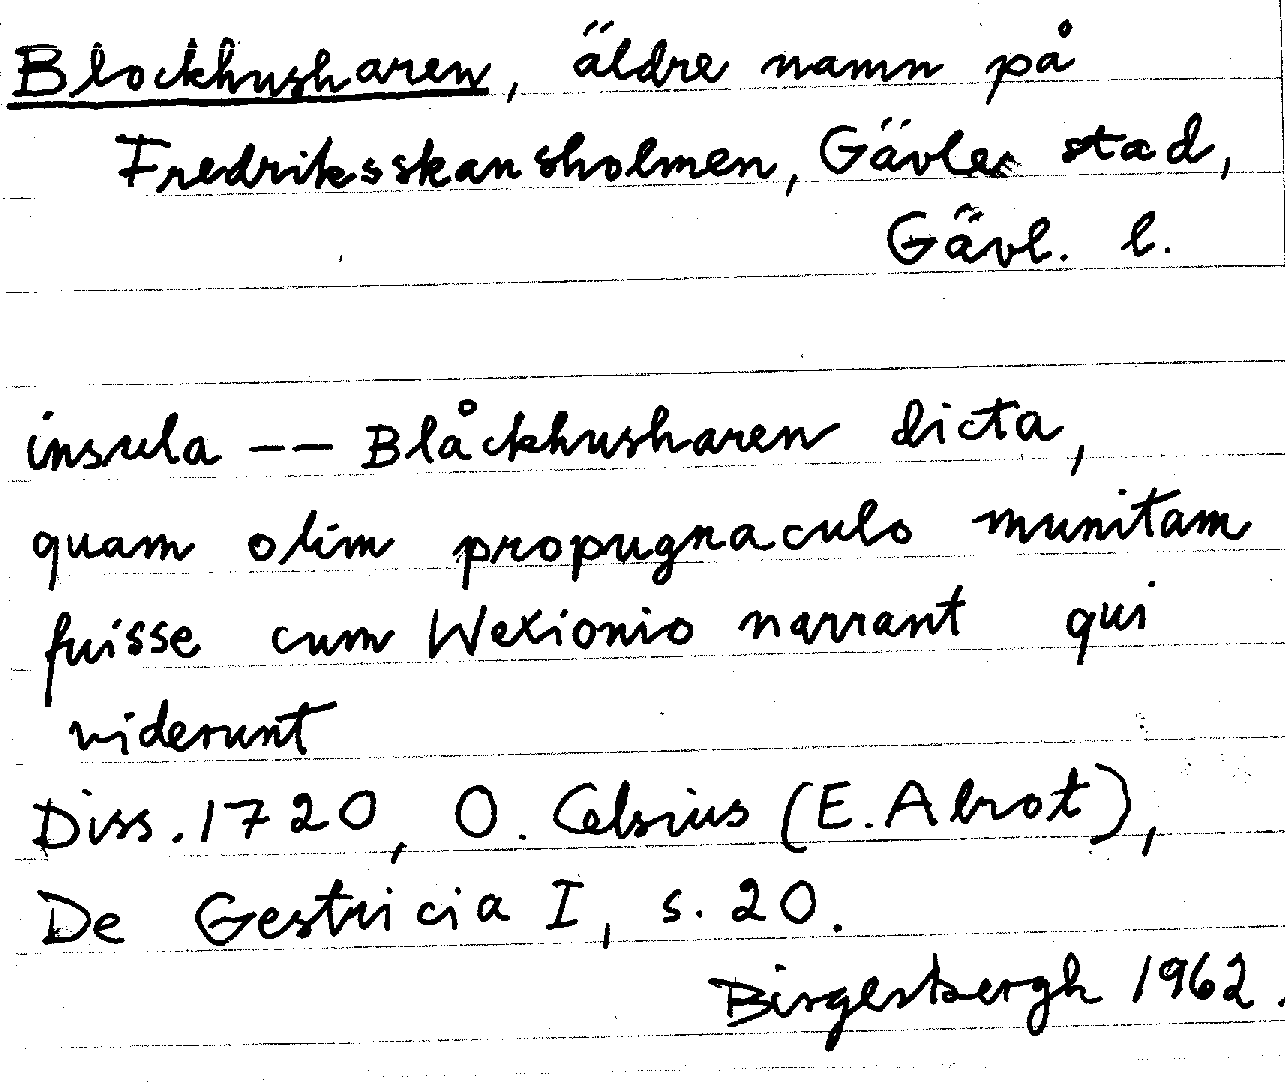 Blockhusharen, äldre namn på
Fredriksskansholmen, Gävle stad,
Gävl. l.
insula -- Blåckhusharen dicta,
quam olim propugnaculo munitam
fuisse cum Wexionio narrant qui
viderunt
Diss. 1720, O. Celsius (E. Abrot),
De Gestricia I, s. 20.
Birgersbergh 1962.